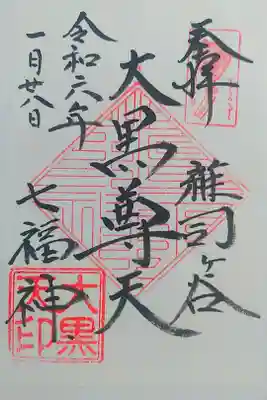 奉拝
雑司ヶ谷
大黒尊天
七福神
令和六年
一月廿八日
大黒
天印